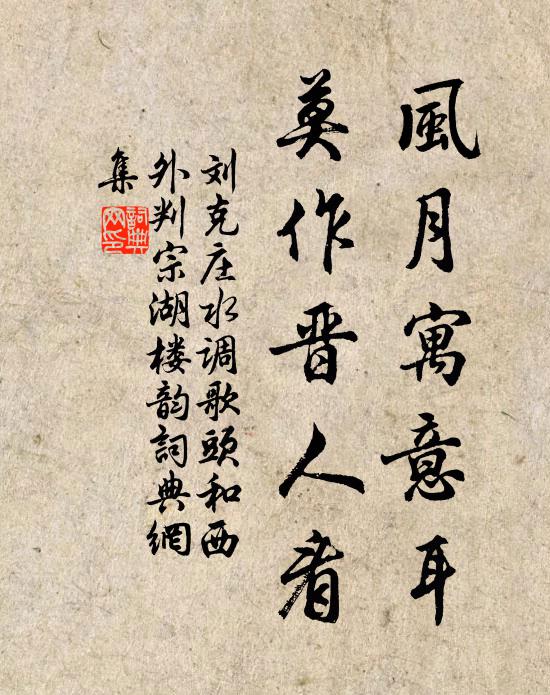 風月寓意耳
莫作晋人看
刘克庄水调歌頭和西
外判宗湖楼韵詞典網
集
詞典
网印